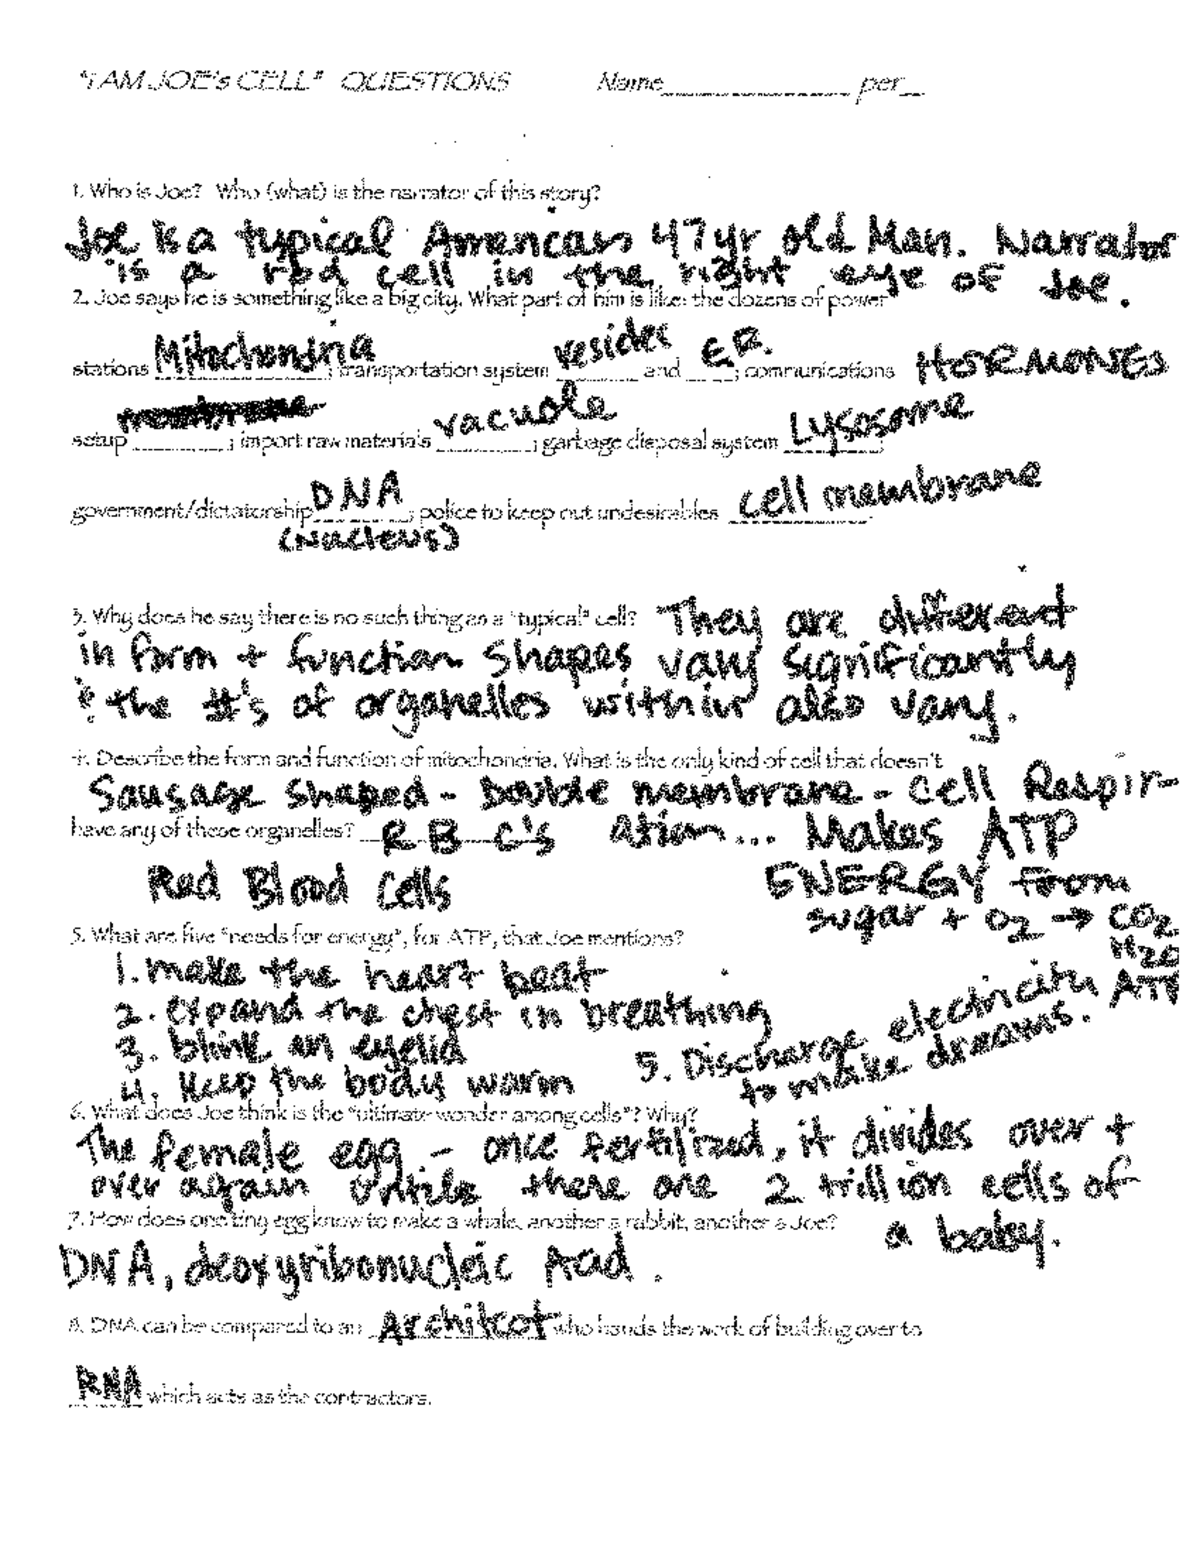 "I AM JOE's CELL" QUESTIONS Name______________ per__
1. Who is Joe? Who (what) is the narrator of this story?
Joe is a typical American 47yr old Man. Narrator
is a rod cell in the right eye of Joe.
2. Joe says he is something like a big city. What part of him is like: the dozens of power
stations Mitochondria ; transportation system vesicles and E.R. ; communications HORMONES
setup membrane ; import raw materials vacuole ; garbage disposal system Lysosome
government/dictatorship DNA ; police to keep out undesirables cell membrane
(Nucleus)
3. Why does he say there is no such thing as a "typical" cell? They are different
in form + function shapes vary significantly
& the #'s of organelles within also vary.
4. Describe the form and function of mitochondria. What is the only kind of cell that doesn't
Sausage shaped - Double membrane - Cell Respir-
have any of these organelles? RBC's ation... Makes ATP
Red Blood Cells ENERGY from
sugar + O2 → CO2
5. What are five "needs for energy", for ATP, that Joe mentions? H2O
1. make the heart beat ATP
2. expand the chest in breathing
3. blink an eyelid 5. Discharge electricity
4. keep the body warm to make dreams.
6. What does Joe think is the "ultimate wonder among cells"? Why?
The female egg - once fertilized, it divides over +
over again until there are 2 trillion cells of
7. How does one tiny egg know to make a whale, another a rabbit, another a Joe? a baby.
DNA, deoxyribonucleic Acid.
8. DNA can be compared to an Architect who hands the work of building over to
RNA which acts as the contractors.